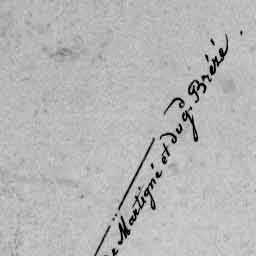 de Martigné et du g. Brézé.